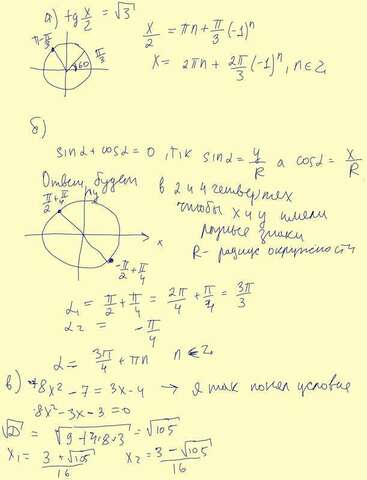 а) tg x/2 = √3
x/2 = πn + π/3 (-1)ⁿ
x = 2πn + 2π/3 (-1)ⁿ, n∈Z
π-π/3
π/3
60
б)
sinα + cosα = 0, т.к sinα = y/R а cosα = x/R,
Ответ будет в 2 и 4 четвертях
чтобы x и y имели
разные знаки
R - радиус окружности
π/2 + π/4
y
x
-π/2 + π/4
α₁ = π/2 + π/4 = 2π/4 + π/4 = 3π/3
α₂ = -π/4
α = 3π/4 + πn n∈Z
в) 8x² - 7 = 3x - 4 → я так понел условие
8x² - 3x - 3 = 0
√D = √9+4·8·3 = √105
x₁ = 3+√105/16 x₂ = 3-√105/16